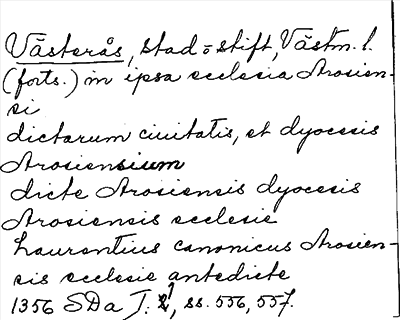 Västerås, stad o. stift, Västm. l.
(forts.) in ipsa ecclesia Arosien-
si
dictarum ciuitatis, et dyocesis
Arosiensium
dicte Arosiensis dyocesis
Arosiensis ecclesie
Laurentius canonicus Arosien-
sis ecclesie antedicte
1356 SDa I: , ss. 556, 557.